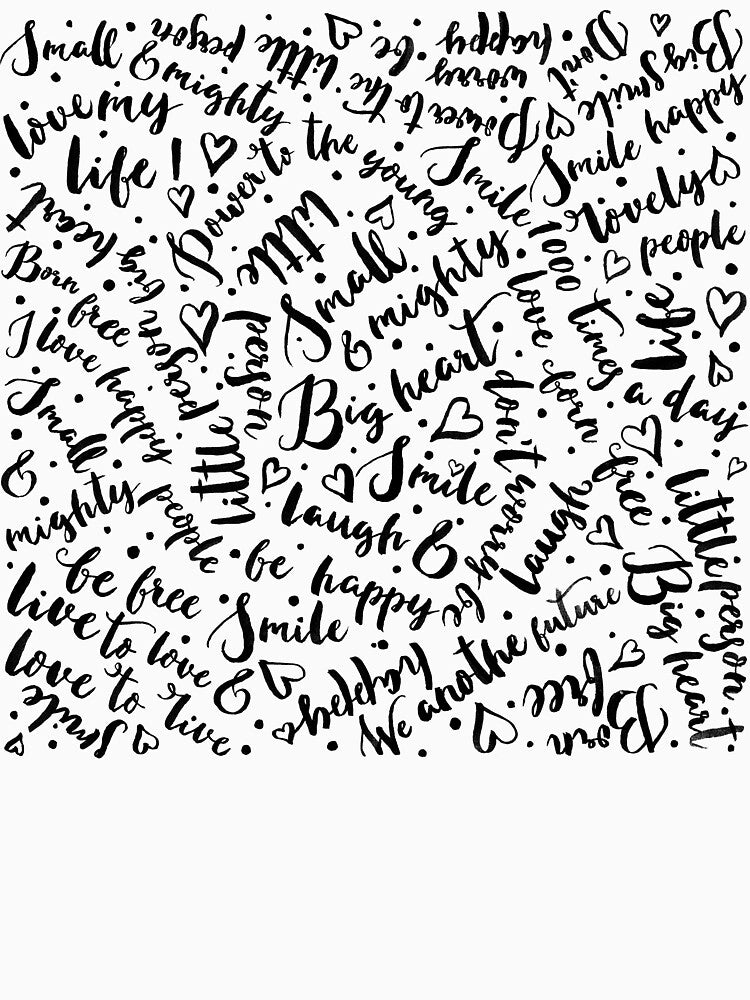 Small
& mighty
little person
Power to the little
don't worry be happy
Big Smile
love my
life !
Power to the young
Smile 1000 times a day
Smile happy
lovely
people
little
person
Big heart
little person
Born
free
I love happy
people
Small
&
mighty
Small
& mighty
Big heart
Smile
laugh &
be happy
don't worry be
happy
love born
free
life
little person
laugh
be free
live to love &
love to live
Smile
Smile
We anothe future
Born
free
Big heart